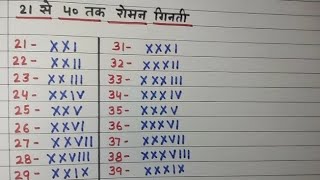 21 से 40 तक रोमन गिनती
21- XXI
22- XXII
23- XXIII
24- XXIV
25- XXV
26- XXVI
27- XXVII
28- XXVIII
29- XXIX
31- XXXI
32- XXXII
33- XXXIII
34- XXXIV
35- XXXV
36- XXXVI
37- XXXVII
38- XXXVIII
39- XXXIX